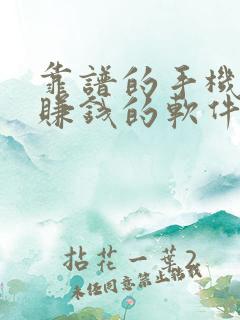 靠譜的手機
賺錢的軟件
拈花一葉2
未經同意禁止轉載